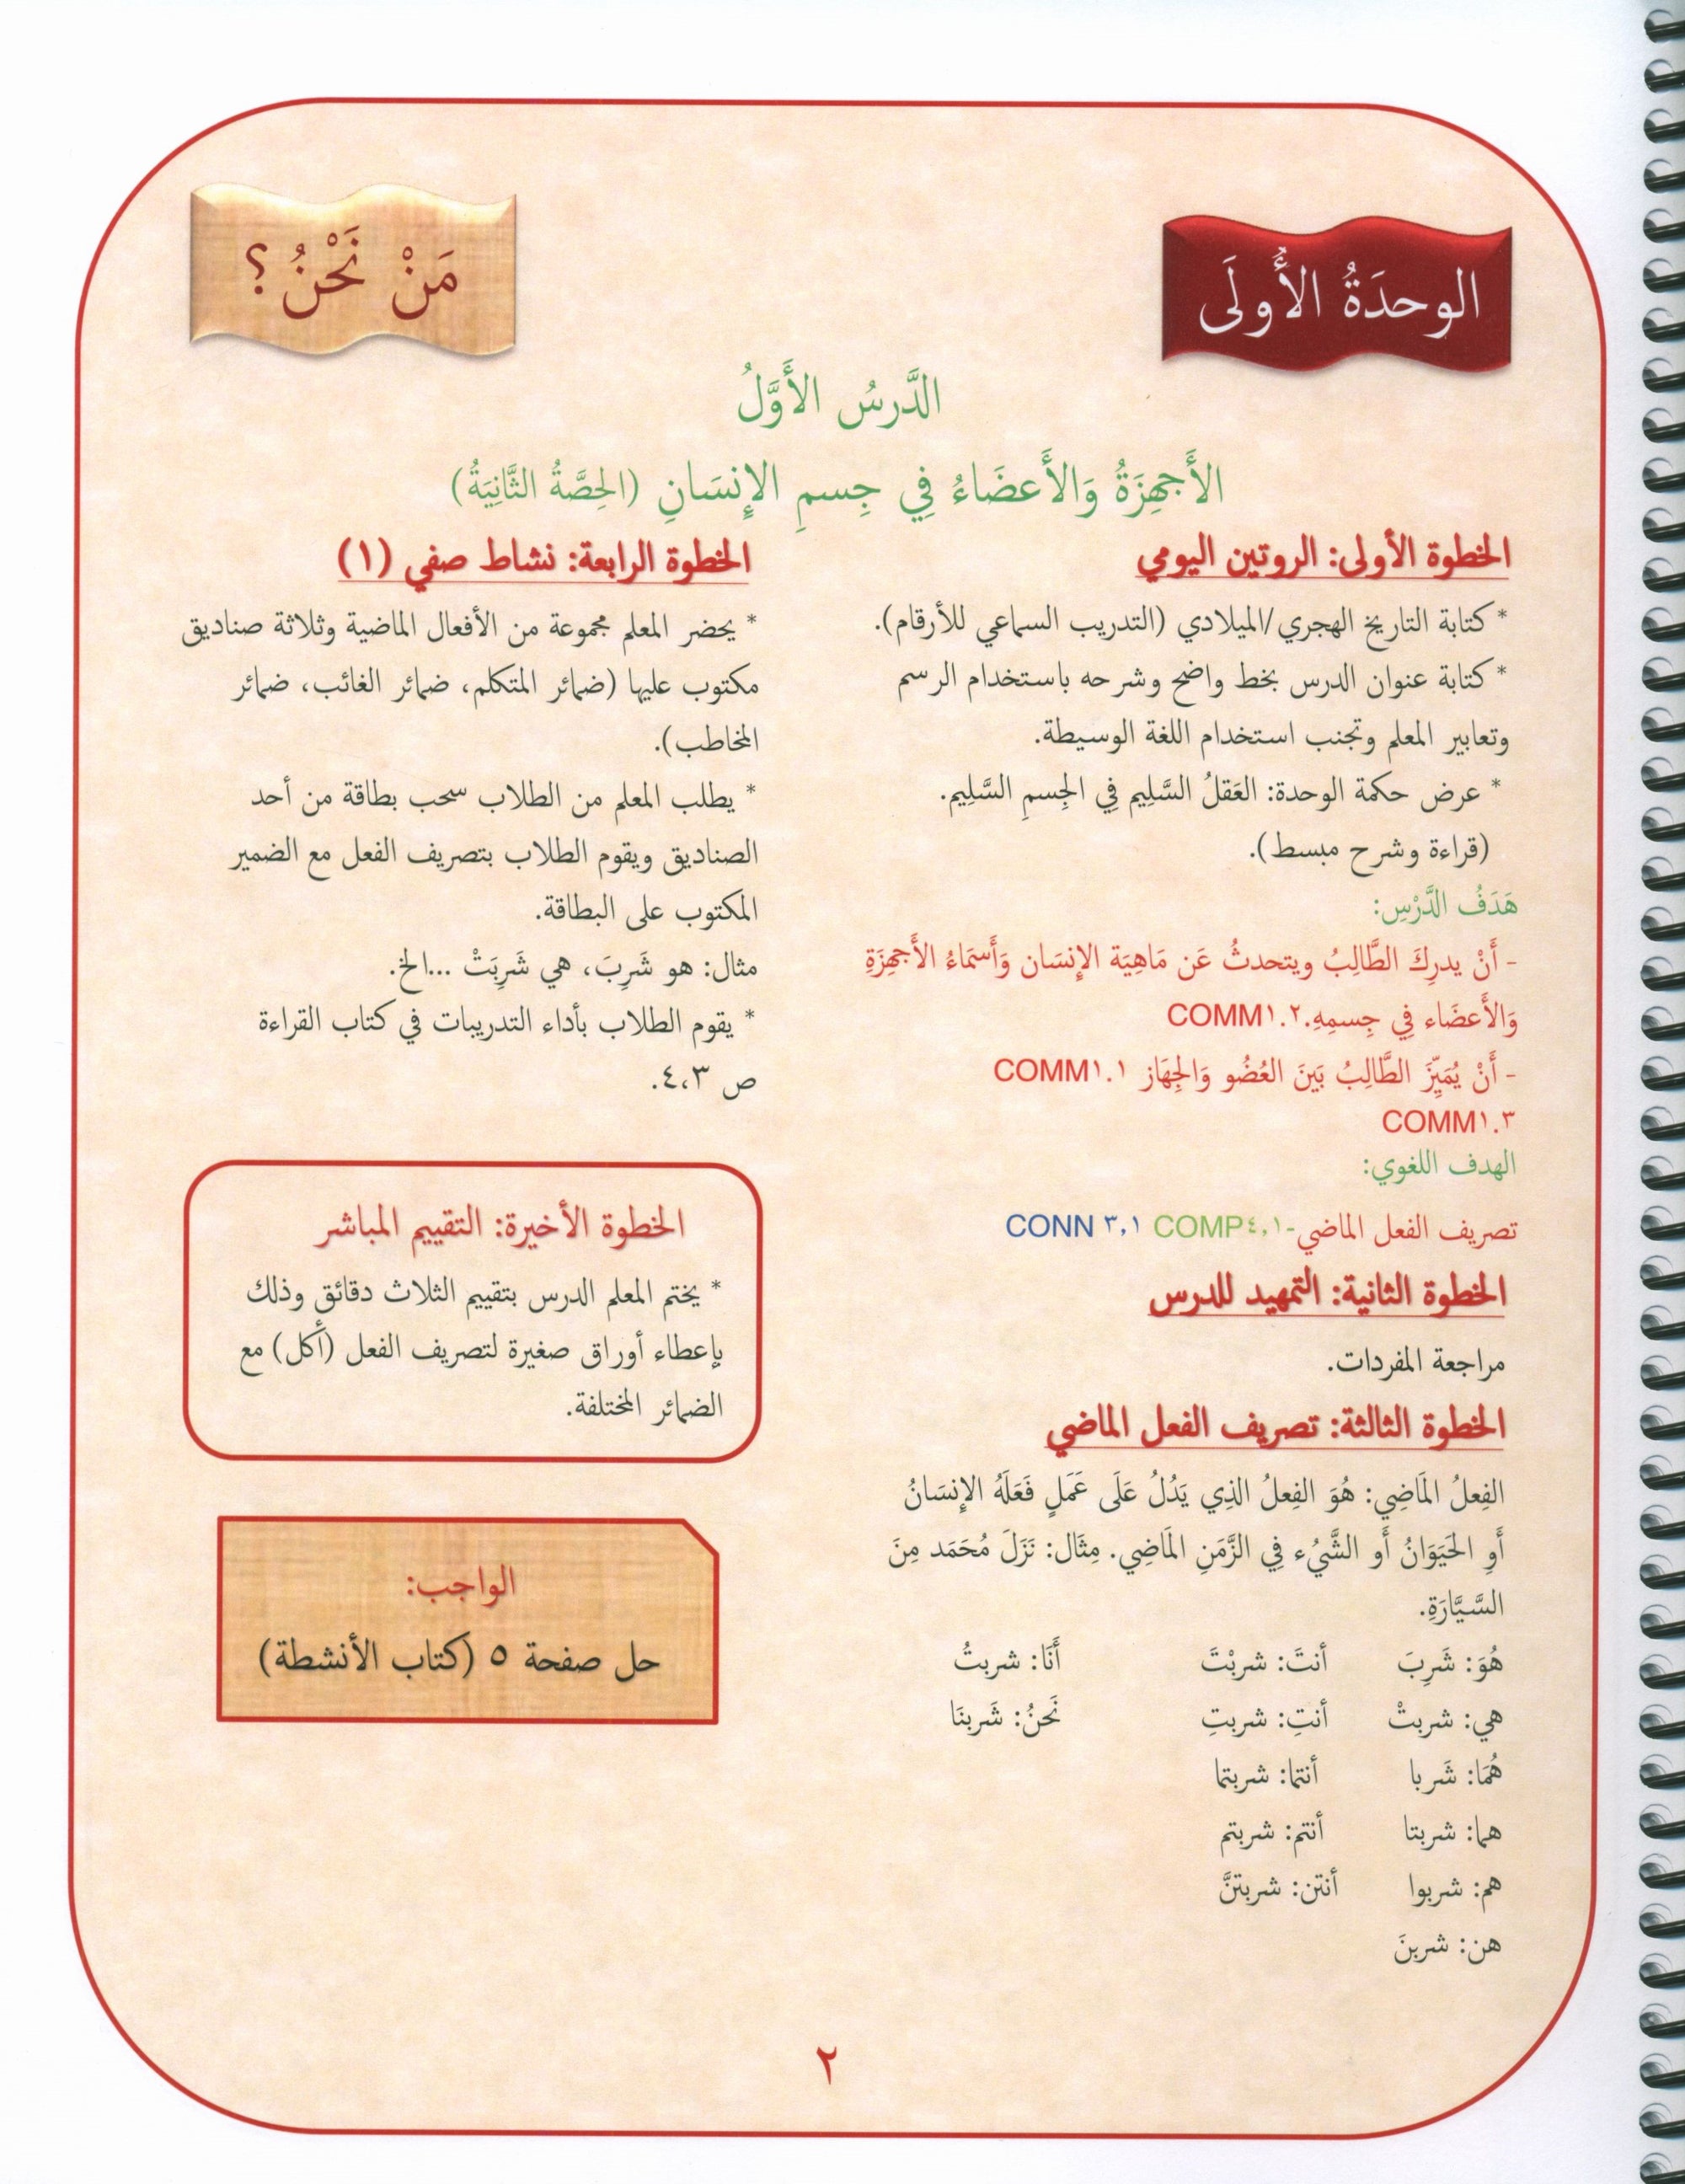 الوحدَةُ الأُولَى
مَنْ نَحْنُ؟
الدَّرسُ الأَوَّلُ
الأَجهِزَةُ وَالأَعضَاءُ فِي جِسمِ الإِنسَانِ (الحِصَّةُ الثَّانِيَةُ)
الخطوة الأولى: الروتين اليومي
* كتابة التاريخ الهجري/الميلادي (التدريب السماعي للأرقام).
* كتابة عنوان الدرس بخط واضح وشرحه باستخدام الرسم
وتعابير المعلم وتجنب استخدام اللغة الوسيطة.
* عرض حكمة الوحدة: العَقلُ السَّلِيم فِي الجِسمِ السَّلِيم.
(قراءة وشرح مبسط).
هَدَفُ الدَّرْسِ:
- أَنْ يدرِكَ الطَّالِبُ ويتحدثُ عَن مَاهِيَة الإِنسَان وَأَسمَاءُ الأَجهِزَةِ
وَالأَعضَاء فِي جِسمِهِ.COMM١.٢
- أَنْ يُمَيِّزَ الطَّالِبُ بَينَ العُضُو وَالجِهَاز COMM١.١
COMM١.٣
الهدف اللغوي:
تصريف الفعل الماضي-COMP٤,١ CONN ٣,١
الخطوة الثانية: التمهيد للدرس
مراجعة المفردات.
الخطوة الثالثة: تصريف الفعل الماضي
الفِعلُ المَاضِي: هُوَ الفِعلُ الذِي يَدُلُ عَلَى عَمَلٍ فَعَلَهُ الإِنسَانُ
أَوِ الحَيَوَانُ أَو الشَّيُء فِي الزَّمَنِ المَاضِي. مِثَال: نَزَلَ مُحَمَد مِنَ
السَّيَّارَةِ.
هُوَ: شَرِبَ أنتَ: شربْتَ أَنَا: شربتُ
هي: شربتْ أنتِ: شربتِ نَحنُ: شَربنَا
هُمَا: شَربا أنتما: شربتما
هما: شربتا أنتم: شربتم
هم: شربوا أنتن: شربتنَّ
هن: شربنَ
الخطوة الرابعة: نشاط صفي (١)
* يحضر المعلم مجموعة من الأفعال الماضية وثلاثة صناديق
مكتوب عليها (ضمائر المتكلم، ضمائر الغائب، ضمائر
المخاطب).
* يطلب المعلم من الطلاب سحب بطاقة من أحد
الصناديق ويقوم الطلاب بتصريف الفعل مع الضمير
المكتوب على البطاقة.
مثال: هو شَرِبَ، هي شَرِبَتْ ...الخ.
* يقوم الطلاب بأداء التدريبات في كتاب القراءة
ص ٤،٣.
الخطوة الأخيرة: التقييم المباشر
* يختم المعلم الدرس بتقييم الثلاث دقائق وذلك
بإعطاء أوراق صغيرة لتصريف الفعل (أكل) مع
الضمائر المختلفة.
الواجب:
حل صفحة ٥ (كتاب الأنشطة)
٢